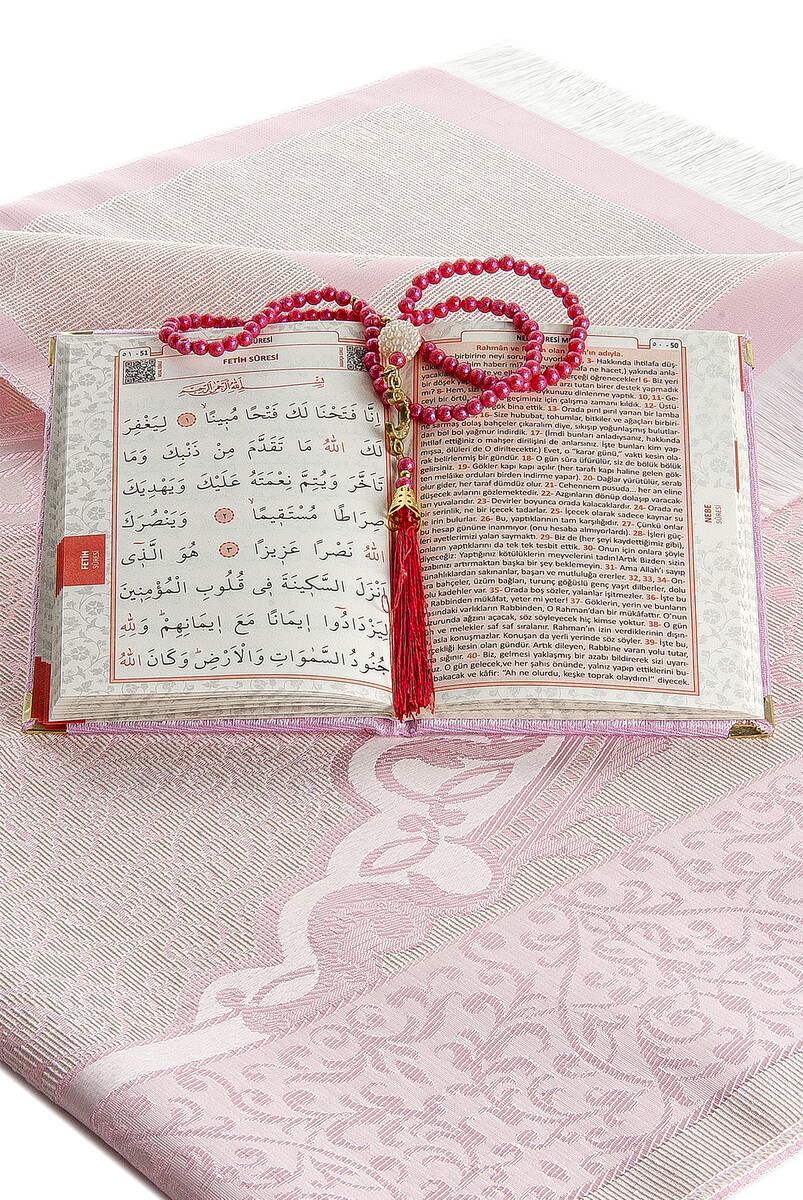 ٥١ - 51
FETİH SÛRESİ
بِسْمِ اللّٰهِ الرَّحْمٰنِ الرَّحِيمِ
اِنَّا فَتَحْنَا لَكَ فَتْحًا مُبِينًا ۙ ١ لِيَغْفِرَ
لَكَ اللّٰهُ مَا تَقَدَّمَ مِنْ ذَنْبِكَ وَمَا
تَاَخَّرَ وَيُتِمَّ نِعْمَتَهُ عَلَيْكَ وَيَهْدِيَكَ
صِرَاطًا مُسْتَقِيمًا ۙ ٢ وَيَنْصُرَكَ
اللّٰهُ نَصْرًا عَزِيزًا ٣ هُوَ الَّذٖٓى
اَنْزَلَ السَّكٖينَةَ فٖى قُلُوبِ الْمُؤْمِنٖينَ
لِيَزْدَادُٓوا اٖيمَانًا مَعَ اٖيمَانِهِمْ ۜ وَلِلّٰهِ
جُنُودُ السَّمٰوَاتِ وَالْاَرْضِ ۜ وَكَانَ اللّٰهُ
FETİH
SÛRESİ
٥٠ - 50
Rahman ve
birbirine neyi 3- Hakkında ihtilafa düş-
yakında anla-
gerçeği öğrenecekler! 6- Biz yeri
arzı tutan birer destek yapmadık
uykunuzu dinlenme yaptık. 10, 11- Ge-
geçiminiz için çalışma zamanı kıldık. 12- Üstü-
gök bina ettik. 13- Orada pırıl pırıl yanan bir lamba
16- Size hububat, tohumlar, bitkiler ve ağaçları birbiri-
ne sarmaş dolaş bahçeler çıkaralım diye, sıkışıp yoğunlaşmış bulutlar-
dan bol bol yağmur indirdik. 17- (İmdi bunları anladıysanız, hakkında
ihtilaf ettiğiniz o mahşer dirilişini de anlarsınız. İşte bunları kim yap-
mışsa, ölüleri de O diriltecektir.) Evet, o “karar günü,” vakti kesin ola-
rak belirlenmiş bir gündür. 18- O gün sûra üfürülür, siz de bölük bölük
gelirsiniz. 19- Gökler kapı kapı açılır (her taraf kapı haline gelen gök-
ten melâike orduları birden indirme yapar). 20- Dağlar yürütülür, serab
olur gider, her taraf dümdüz olur. 21- Cehennem pusuda... her an eline
düşecek avlarını gözlemektedir. 22- Azgınların dönüp dolaşıp varacak-
yuvalarıdır. 23- Devirler boyunca orada kalacaklardır. 24- Orada ne
bir serinlik, ne bir içecek tadarlar. 25- İçecek olarak sadece kaynar su
irin bulurlar. 26- Bu, yaptıklarının tam karşılığıdır. 27- Çünkü onlar
hesap gününe inanmıyor (onu hesaba almıyorlardı). 28- İşleri güç-
leri ayetlerimizi yalan saymaktı. 29- Biz de (her şeyi kaydettiğimiz gibi),
onların yaptıklarını da tek tek tesbit ettik. 30- Onun için onlara şöyle
diyeceğiz: Yaptığınız kötülüklerin meyvelerini tadın! Artık Bizden sizin
azabınızı artırmaktan başka bir şey beklemeyin. 31- Ama Allah’ı sayıp
günahlardan sakınanlar, başarı ve mutluluğa ererler. 32, 33, 34- On-
lara bahçeler, üzüm bağları, turunç göğüslü genç yaşıt dilberler, dolu
kadehler var. 35- Orada boş sözler, yalanlar işitmezler. 36- İşte bu
Rabbinden mükâfat, yeter mi yeter! 37- Göklerin, yerin ve bunların
arasındaki varlıkların Rabbinden, O Rahman’dan bir mükâfattır. O’nun
huzurunda ağzını açacak, söz söyleyecek hiç kimse yoktur. 38- O gün
ve melekler saf saf sıralanır. Rahman’ın izin verdiklerinin dışın-
asla konuşmazlar. Konuşan da yerli yerinde söz söyler. 39- İşte bu,
geleceği kesin olan gündür. Artık dileyen, Rabbine varan yolu tutar,
sığınır. 40- Biz, gelmesi yaklaşmış bir azabı bildirerek sizi uyar-
O gün gelecek, ve her şahıs önünde, yalnız yapıp ettiklerini bu-
bakacak ve kâfir: “Ah ne olurdu, keşke toprak olaydım!” diyecek.
NEBE
SÛRESİ